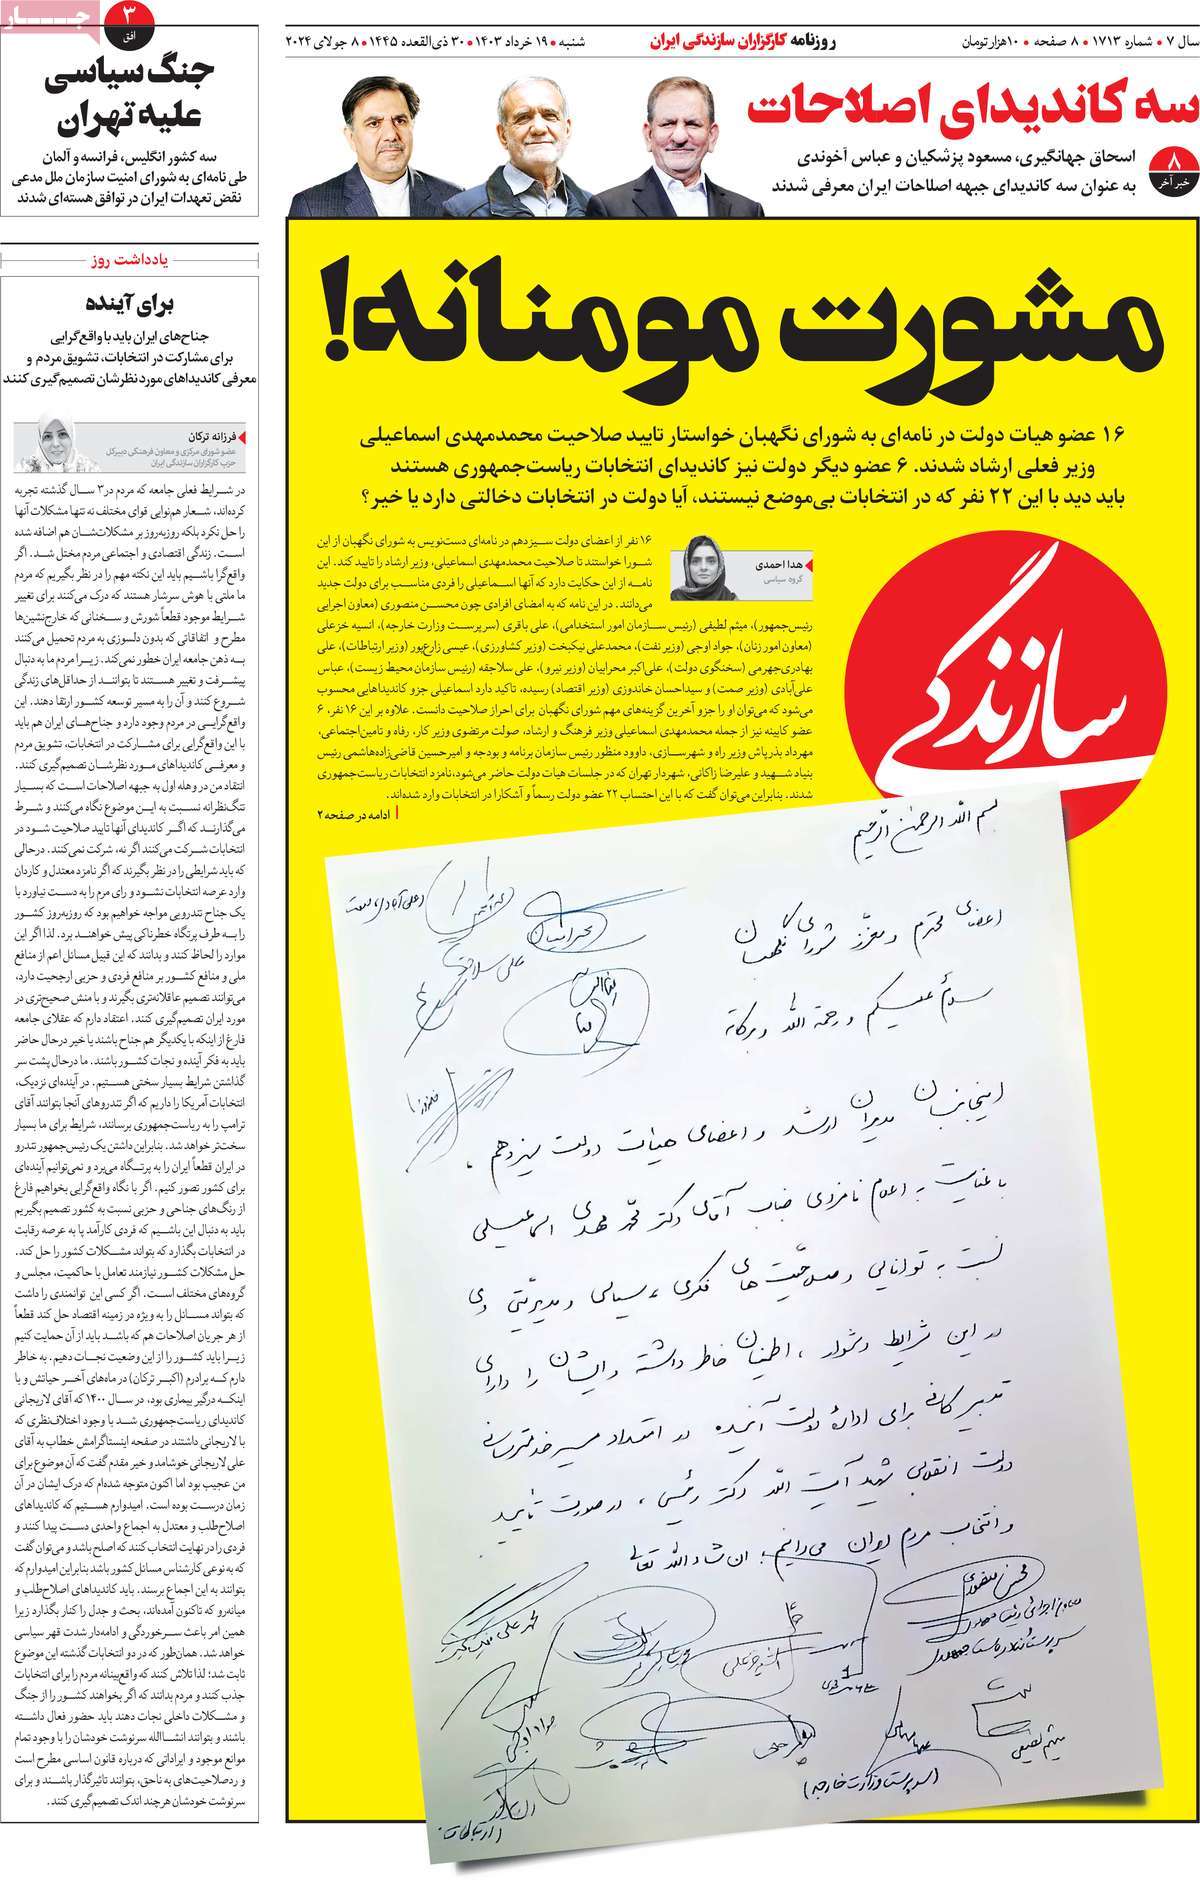 سال ۷ • شماره ۱۷۱۳ • ۸ صفحه • ۱۰هزار تومان
روزنامه کارگزاران سازندگی ایران
شنبه • ۱۹ خرداد ۱۴۰۳ • ۳۰ ذی‌القعده ۱۴۴۵ • ۸ جولای ۲۰۲۴
سه کاندیدای اصلاحات
۸
خبر آخر
اسحاق جهانگیری، مسعود پزشکیان و عباس آخوندی
به عنوان سه کاندیدای جبهه اصلاحات ایران معرفی شدند
جار
۳
افق
جنگ سیاسی
علیه تهران
سه کشور انگلیس، فرانسه و آلمان
طی نامه‌ای به شورای امنیت سازمان ملل مدعی
نقض تعهدات ایران در توافق هسته‌ای شدند
مشورت مومنانه!
۱۶ عضو هیات دولت در نامه‌ای به شورای نگهبان خواستار تایید صلاحیت محمدمهدی اسماعیلی
وزیر فعلی ارشاد شدند. ۶ عضو دیگر دولت نیز کاندیدای انتخابات ریاست‌جمهوری هستند
باید دید با این ۲۲ نفر که در انتخابات بی‌موضع نیستند، آیا دولت در انتخابات دخالتی دارد یا خیر؟
سازندگی
هدا احمدی
گروه سیاسی
۱۶ نفر از اعضای دولت سیزدهم در نامه‌ای دست‌نویس به شورای نگهبان از این
شورا خواستند تا صلاحیت محمدمهدی اسماعیلی، وزیر ارشاد را تایید کند. این
نامه از این حکایت دارد که آنها اسماعیلی را فردی مناسب برای دولت جدید
می‌دانند. در این نامه که به امضای افرادی چون محسن منصوری (معاون اجرایی
رئیس‌جمهور)، میثم لطیفی (رئیس سازمان امور استخدامی)، علی باقری (سرپرست وزارت خارجه)، انسیه خزعلی
(معاون امور زنان)، جواد اوجی (وزیر نفت)، محمدعلی نیکبخت (وزیر کشاورزی)، عیسی زارع‌پور (وزیر ارتباطات)، علی
بهادری‌جهرمی (سخنگوی دولت)، علی‌اکبر محرابیان (وزیر نیرو)، علی سلاجقه (رئیس سازمان محیط زیست)، عباس
علی‌آبادی (وزیر صمت) و سیداحسان خاندوزی (وزیر اقتصاد) رسیده، تاکید دارد اسماعیلی جزو کاندیداهایی محسوب
می‌شود که می‌توان او را جزو آخرین گزینه‌های مهم شورای نگهبان برای احراز صلاحیت دانست. علاوه بر این ۱۶ نفر، ۶
عضو کابینه نیز از جمله محمدمهدی اسماعیلی وزیر فرهنگ و ارشاد، صولت مرتضوی وزیر کار، رفاه و تامین‌اجتماعی،
مهرداد بذرپاش وزیر راه و شهرسازی، داوود منظور رئیس سازمان برنامه و بودجه و امیرحسین قاضی‌زاده‌هاشمی رئیس
بنیاد شهید و علیرضا زاکانی، شهردار تهران که در جلسات هیات دولت حاضر می‌شود، نامزد انتخابات ریاست‌جمهوری
شدند. بنابراین می‌توان گفت که با این احتساب ۲۲ عضو دولت رسماً و آشکارا در انتخابات وارد شده‌اند.
ادامه در صفحه ۲
بسم الله الرحمن الرحیم
اعضای محترم و معزز شورای نگهبان
سلام علیکم و رحمة الله و برکاته
اینجانبان مدیران ارشد و اعضای هیات دولت سیزدهم،
با عنایت به اعلام نامزدی جناب آقای دکتر محمد مهدی اسماعیلی
نسبت به توانایی و صلاحیت های فکری، سیاسی و مدیریتی وی
در این شرایط دشوار، اطمینان خاطر داشته و ایشان را دارای
تدبیر کافی برای اداره دولت آینده در امتداد مسیر خدمترسانی
دولت انقلابی شهید آیت الله دکتر رئیسی، در صورت تایید
و انتخاب مردم ایران می‌دانیم. ان شاء الله تعالی
علی آبادی صمت
محرابیان
علی سلاجقه
خاندوزی
محسن منصوری
معاون اجرایی رئیس جمهور
سرپرست نهاد ریاست جمهوری
محمد علی نیکبخت
انسیه خزعلی
جواد اوجی
میثم لطیفی
(سرپرست وزارت خارجه)
(ارتباطات)
یادداشت روز
برای آینده
جناح‌های ایران باید با واقع‌گرایی
برای مشارکت در انتخابات، تشویق مردم و
معرفی کاندیداهای مورد نظرشان تصمیم‌گیری کنند
فرزانه ترکان
عضو شورای مرکزی و معاون فرهنگی دبیرکل
حزب کارگزاران سازندگی ایران
در شرایط فعلی جامعه که مردم در۳ سال گذشته تجربه
کرده‌اند، شعار هم‌نوایی قوای مختلف نه تنها مشکلات آنها
را حل نکرد بلکه روزبه‌روز بر مشکلات‌شان هم اضافه شده
است. زندگی اقتصادی و اجتماعی مردم مختل شد. اگر
واقع‌گرا باشیم باید این نکته مهم را در نظر بگیریم که مردم
ما ملتی با هوش سرشار هستند که درک می‌کنند برای تغییر
شرایط موجود قطعاً شورش و سخنانی که خارج‌نشین‌ها
مطرح و اتفاقاتی که بدون دلسوزی به مردم تحمیل می‌کنند
به ذهن جامعه ایران خطور نمی‌کند. زیرا مردم ما به دنبال
پیشرفت و تغییر هستند تا بتوانند از حداقل‌های زندگی
شروع کنند و آن را به مسیر توسعه کشور ارتقا دهند. این
واقع‌گرایی در مردم وجود دارد و جناح‌های ایران هم باید
با این واقع‌گرایی برای مشارکت در انتخابات، تشویق مردم
و معرفی کاندیداهای مورد نظرشان تصمیم‌گیری کنند.
انتقاد من در وهله اول به جبهه اصلاحات است که بسیار
تنگ‌نظرانه نسبت به این موضوع نگاه می‌کنند و شرط
می‌گذارند که اگر کاندیدای آنها تایید صلاحیت شود در
انتخابات شرکت می‌کنند اگر نه، شرکت نمی‌کنند. درحالی
که باید شرایطی را در نظر بگیرند که اگر نامزد معتدل و کاردان
وارد عرصه انتخابات نشود و رای مرم را به دست نیاورد با
یک جناح تندرویی مواجه خواهیم بود که روزبه‌روز کشور
را به طرف پرتگاه خطرناکی پیش خواهند برد. لذا اگر این
موارد را لحاظ کنند و بدانند که این قبیل مسائل اعم از منافع
ملی و منافع کشور بر منافع فردی و حزبی ارجحیت دارد،
می‌توانند تصمیم عاقلانه‌تری بگیرند و با منش صحیح‌تری در
مورد ایران تصمیم‌گیری کنند. اعتقاد دارم که عقلای جامعه
فارغ از اینکه با یکدیگر هم جناح باشند یا خیر درحال حاضر
باید به فکر آینده و نجات کشور باشند. ما درحال پشت سر
گذاشتن شرایط بسیار سختی هستیم. در آینده‌ای نزدیک،
انتخابات آمریکا را داریم که اگر تندروهای آنجا بتوانند آقای
ترامپ را به ریاست‌جمهوری برسانند، شرایط برای ما بسیار
سخت‌تر خواهد شد. بنابراین داشتن یک رئیس‌جمهور تندرو
در ایران قطعاً ایران را به پرتگاه می‌برد و نمی‌توانیم آینده‌ای
برای کشور تصور کنیم. اگر با نگاه واقع‌گرایی بخواهیم فارغ
از رنگ‌های جناحی و حزبی نسبت به کشور تصمیم بگیریم
باید به دنبال این باشیم که فردی کارآمد پا به عرصه رقابت
در انتخابات بگذارد که بتواند مشکلات کشور را حل کند.
حل مشکلات کشور نیازمند تعامل با حاکمیت، مجلس و
گروه‌های مختلف است. اگر کسی این توانمندی را داشت
که بتواند مسائل را به ویژه در زمینه اقتصاد حل کند قطعاً
از هر جریان اصلاحات هم که باشد باید از آن حمایت کنیم
زیرا باید کشور را از این وضعیت نجات دهیم. به خاطر
دارم که برادرم (اکبر ترکان) در ماه‌های آخر حیاتش و با
اینکه درگیر بیماری بود، در سال ۱۴۰۰ که آقای لاریجانی
کاندیدای ریاست‌جمهوری شد با وجود اختلاف‌نظری که
با لاریجانی داشتند در صفحه اینستاگرامش خطاب به آقای
علی لاریجانی خوشامد و خیر مقدم گفت که آن موضوع برای
من عجیب بود اما اکنون متوجه شده‌ام که درک ایشان در آن
زمان درست بوده است. امیدوارم هستیم که کاندیداهای
اصلاح‌طلب و معتدل به اجماع واحدی دست پیدا کنند و
فردی را در نهایت انتخاب کنند که اصلح باشد و می‌توان گفت
که به نوعی کارشناس مسائل کشور باشد بنابراین امیدوارم که
بتوانند به این اجماع برسند. باید کاندیداهای اصلاح‌طلب و
میانه‌رو که تاکنون آمده‌اند، بحث و جدل را کنار بگذارد زیرا
همین امر باعث سرخوردگی و ادامه‌دار شدت قهر سیاسی
خواهد شد. همان‌طور که در دو انتخابات گذشته این موضوع
ثابت شد؛ لذا تلاش کنند که واقع‌بینانه مردم را برای انتخابات
جذب کنند و مردم بدانند که اگر بخواهند کشور را از جنگ
و مشکلات داخلی نجات دهند باید حضور فعال داشته
باشند و بتوانند انشاالله سرنوشت خودشان را با وجود تمام
موانع موجود و ایراداتی که درباره قانون اساسی مطرح است
و ردصلاحیت‌های به ناحق، بتوانند تاثیرگذار باشند و برای
سرنوشت خودشان هرچند اندک تصمیم‌گیری کنند.